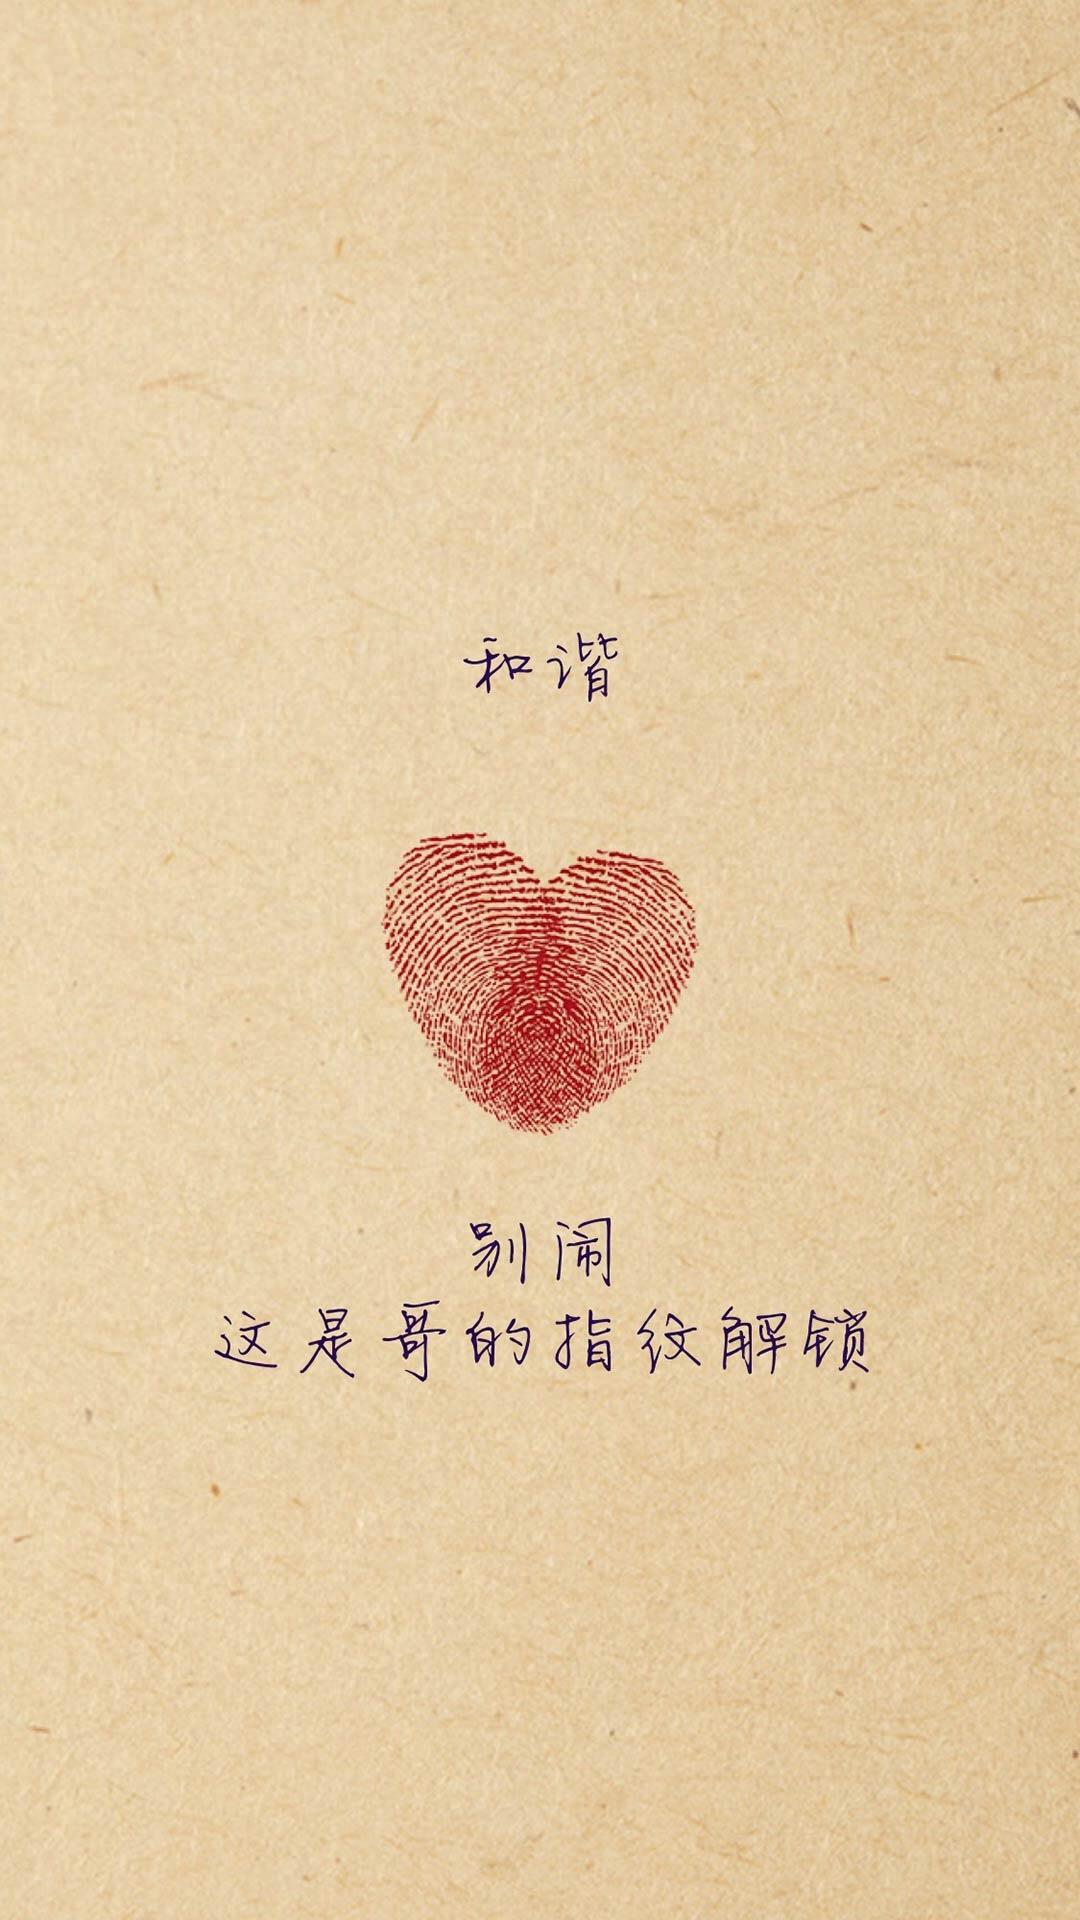 和谐
别闹
这是哥的指纹解锁